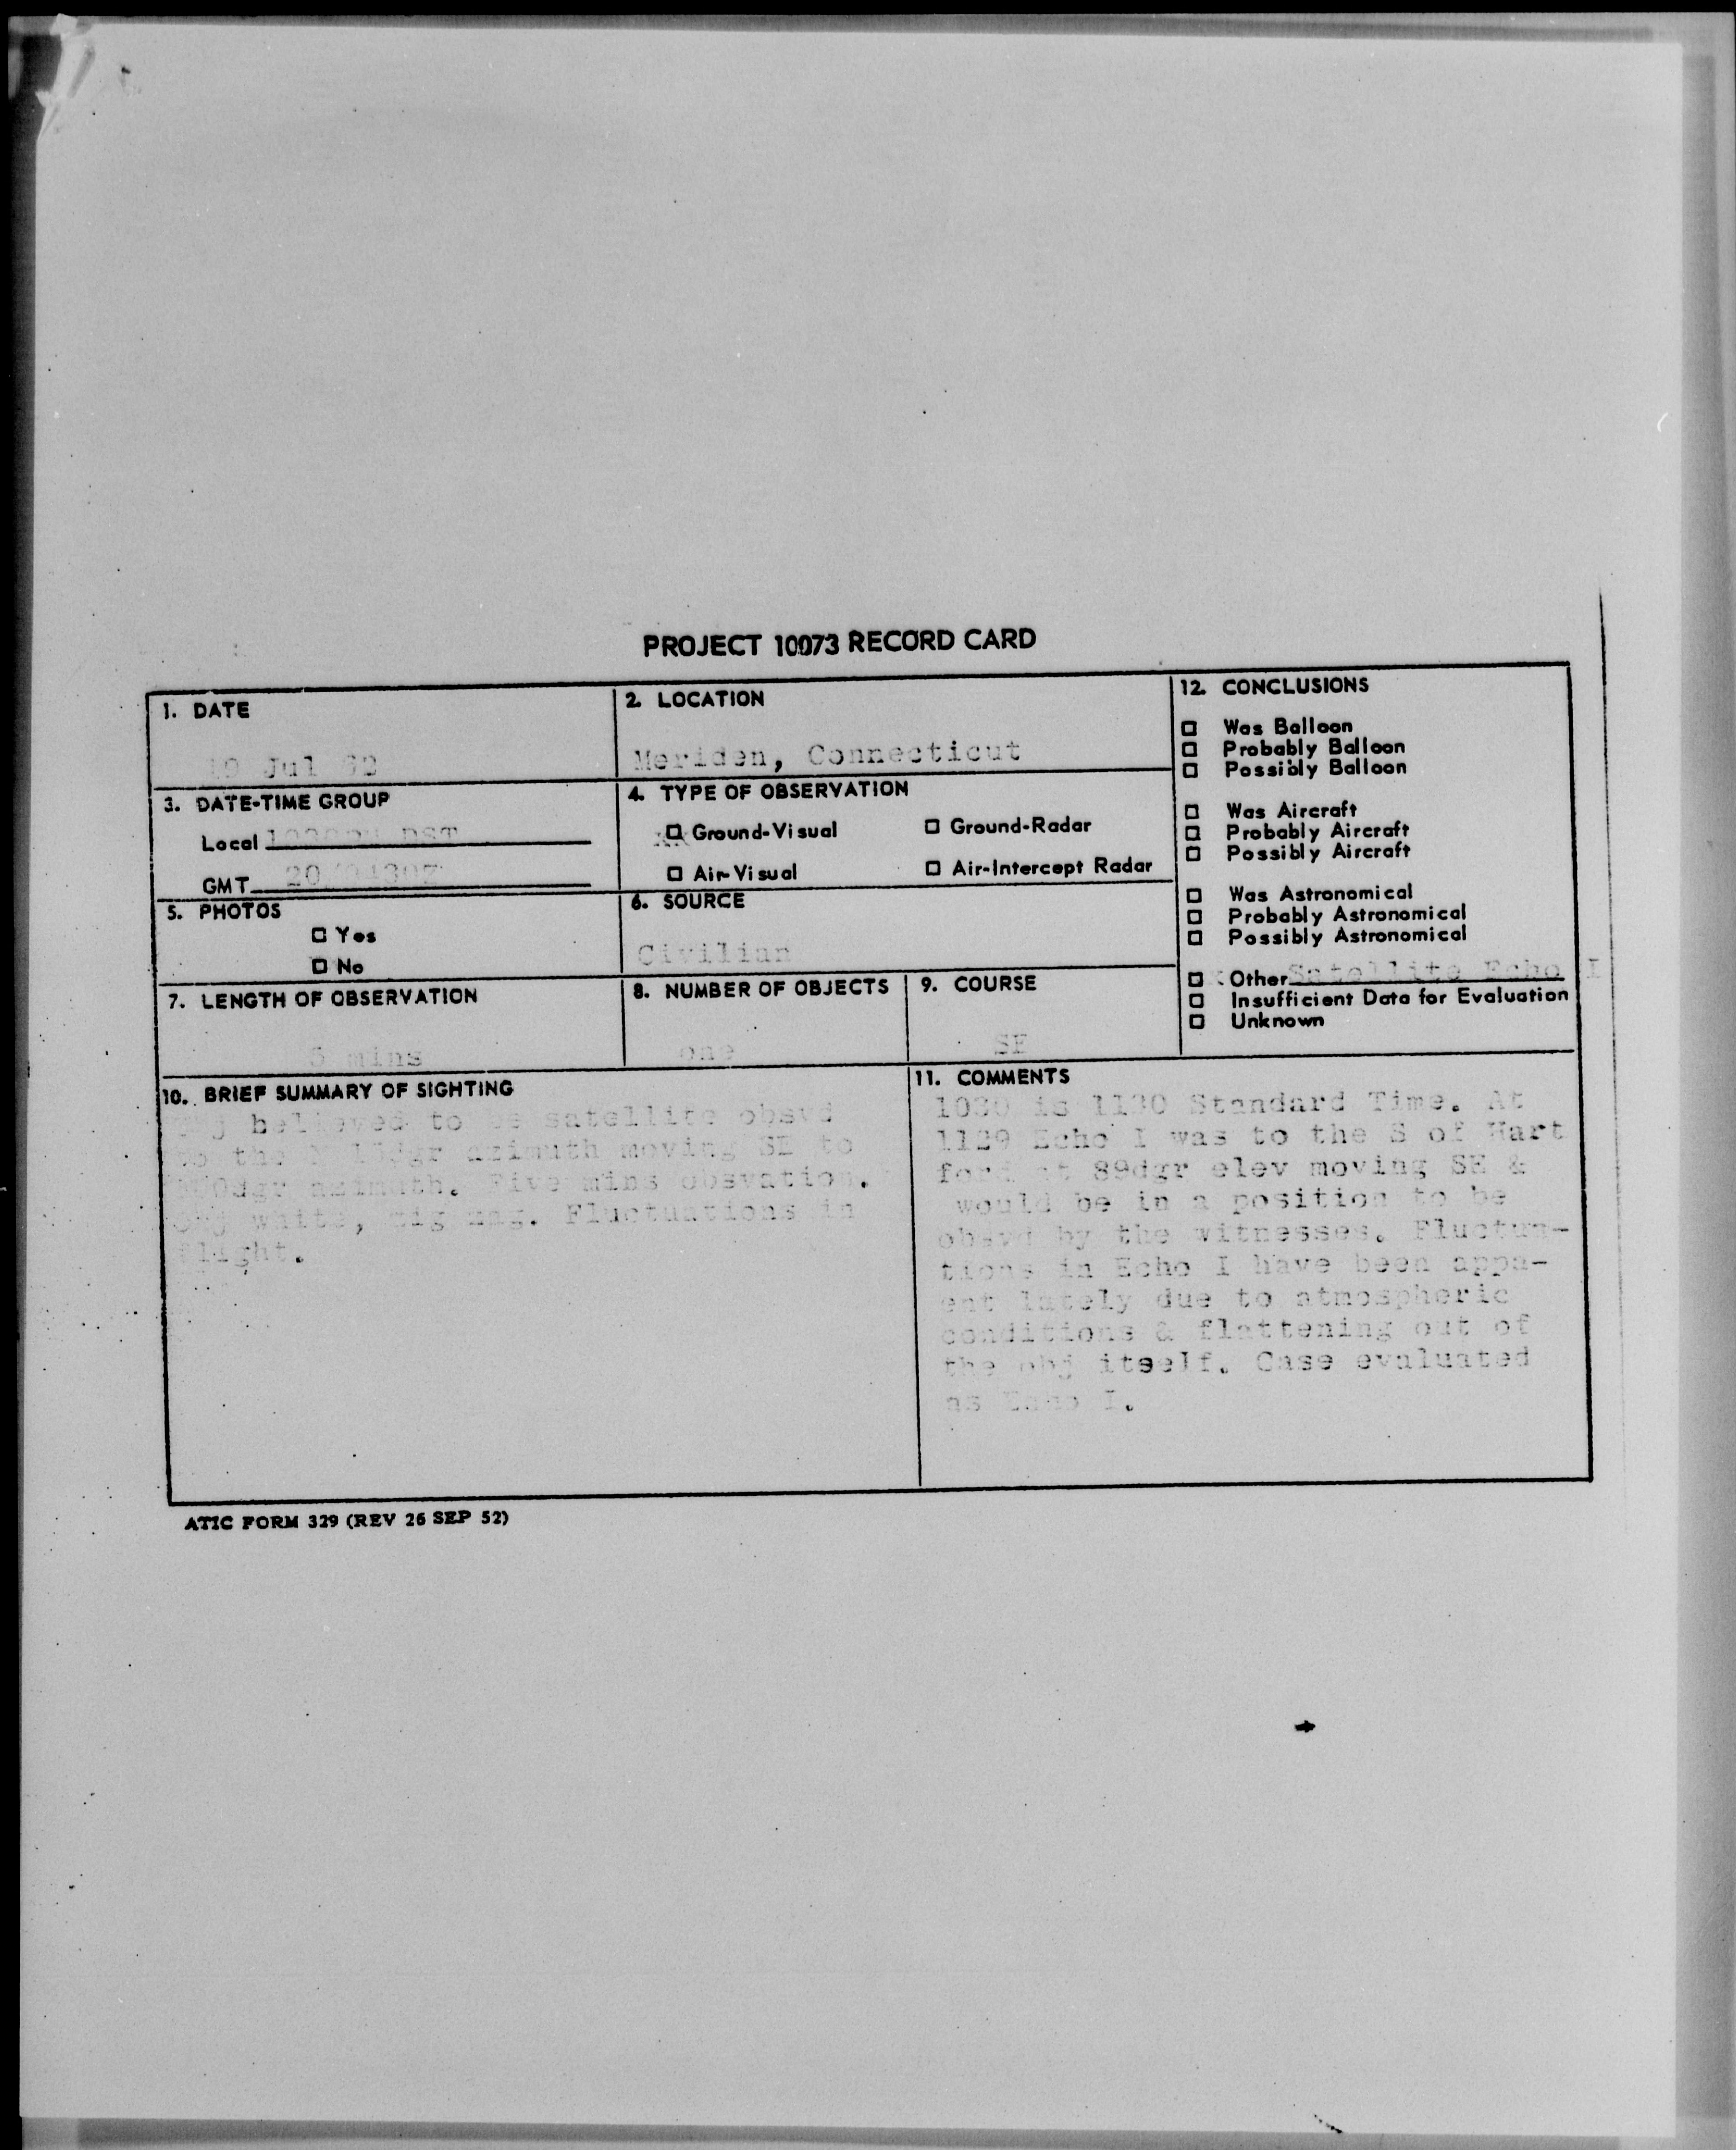 PROJECT 10073 RECORD CARD
1. DATE
19 Jul 62
2. LOCATION
Meriden, Connecticut
3. DATE-TIME GROUP
Local DST
GMT 20/0430Z
4. TYPE OF OBSERVATION
Ground-Visual
Ground-Radar
Air-Visual
Air-Intercept Radar
5. PHOTOS
Yes
No
6. SOURCE
Civilian
7. LENGTH OF OBSERVATION
5 mins
8. NUMBER OF OBJECTS
one
9. COURSE
SE
12. CONCLUSIONS
Was Balloon
Probably Balloon
Possibly Balloon
Was Aircraft
Probably Aircraft
Possibly Aircraft
Was Astronomical
Probably Astronomical
Possibly Astronomical
Other Satellite Echo I
Insufficient Data for Evaluation
Unknown
10. BRIEF SUMMARY OF SIGHTING
Obj believed to be satellite obsvd
to the azimuth moving SE to
azimuth. Five mins obsvation.
Obj white, zig zag. Fluctuations in
flight.
11. COMMENTS
1030 is 1130 Standard Time. At
1129 Echo I was to the S of Hart
ford at 89dgr elev moving SE &
would be in a position to be
obsvd by the witnesses. Fluctua-
tions in Echo I have been appa-
ent lately due to atmospheric
conditions & flattening out of
the obj itself. Case evaluated
as Echo I.
ATIC FORM 329 (REV 26 SEP 52)